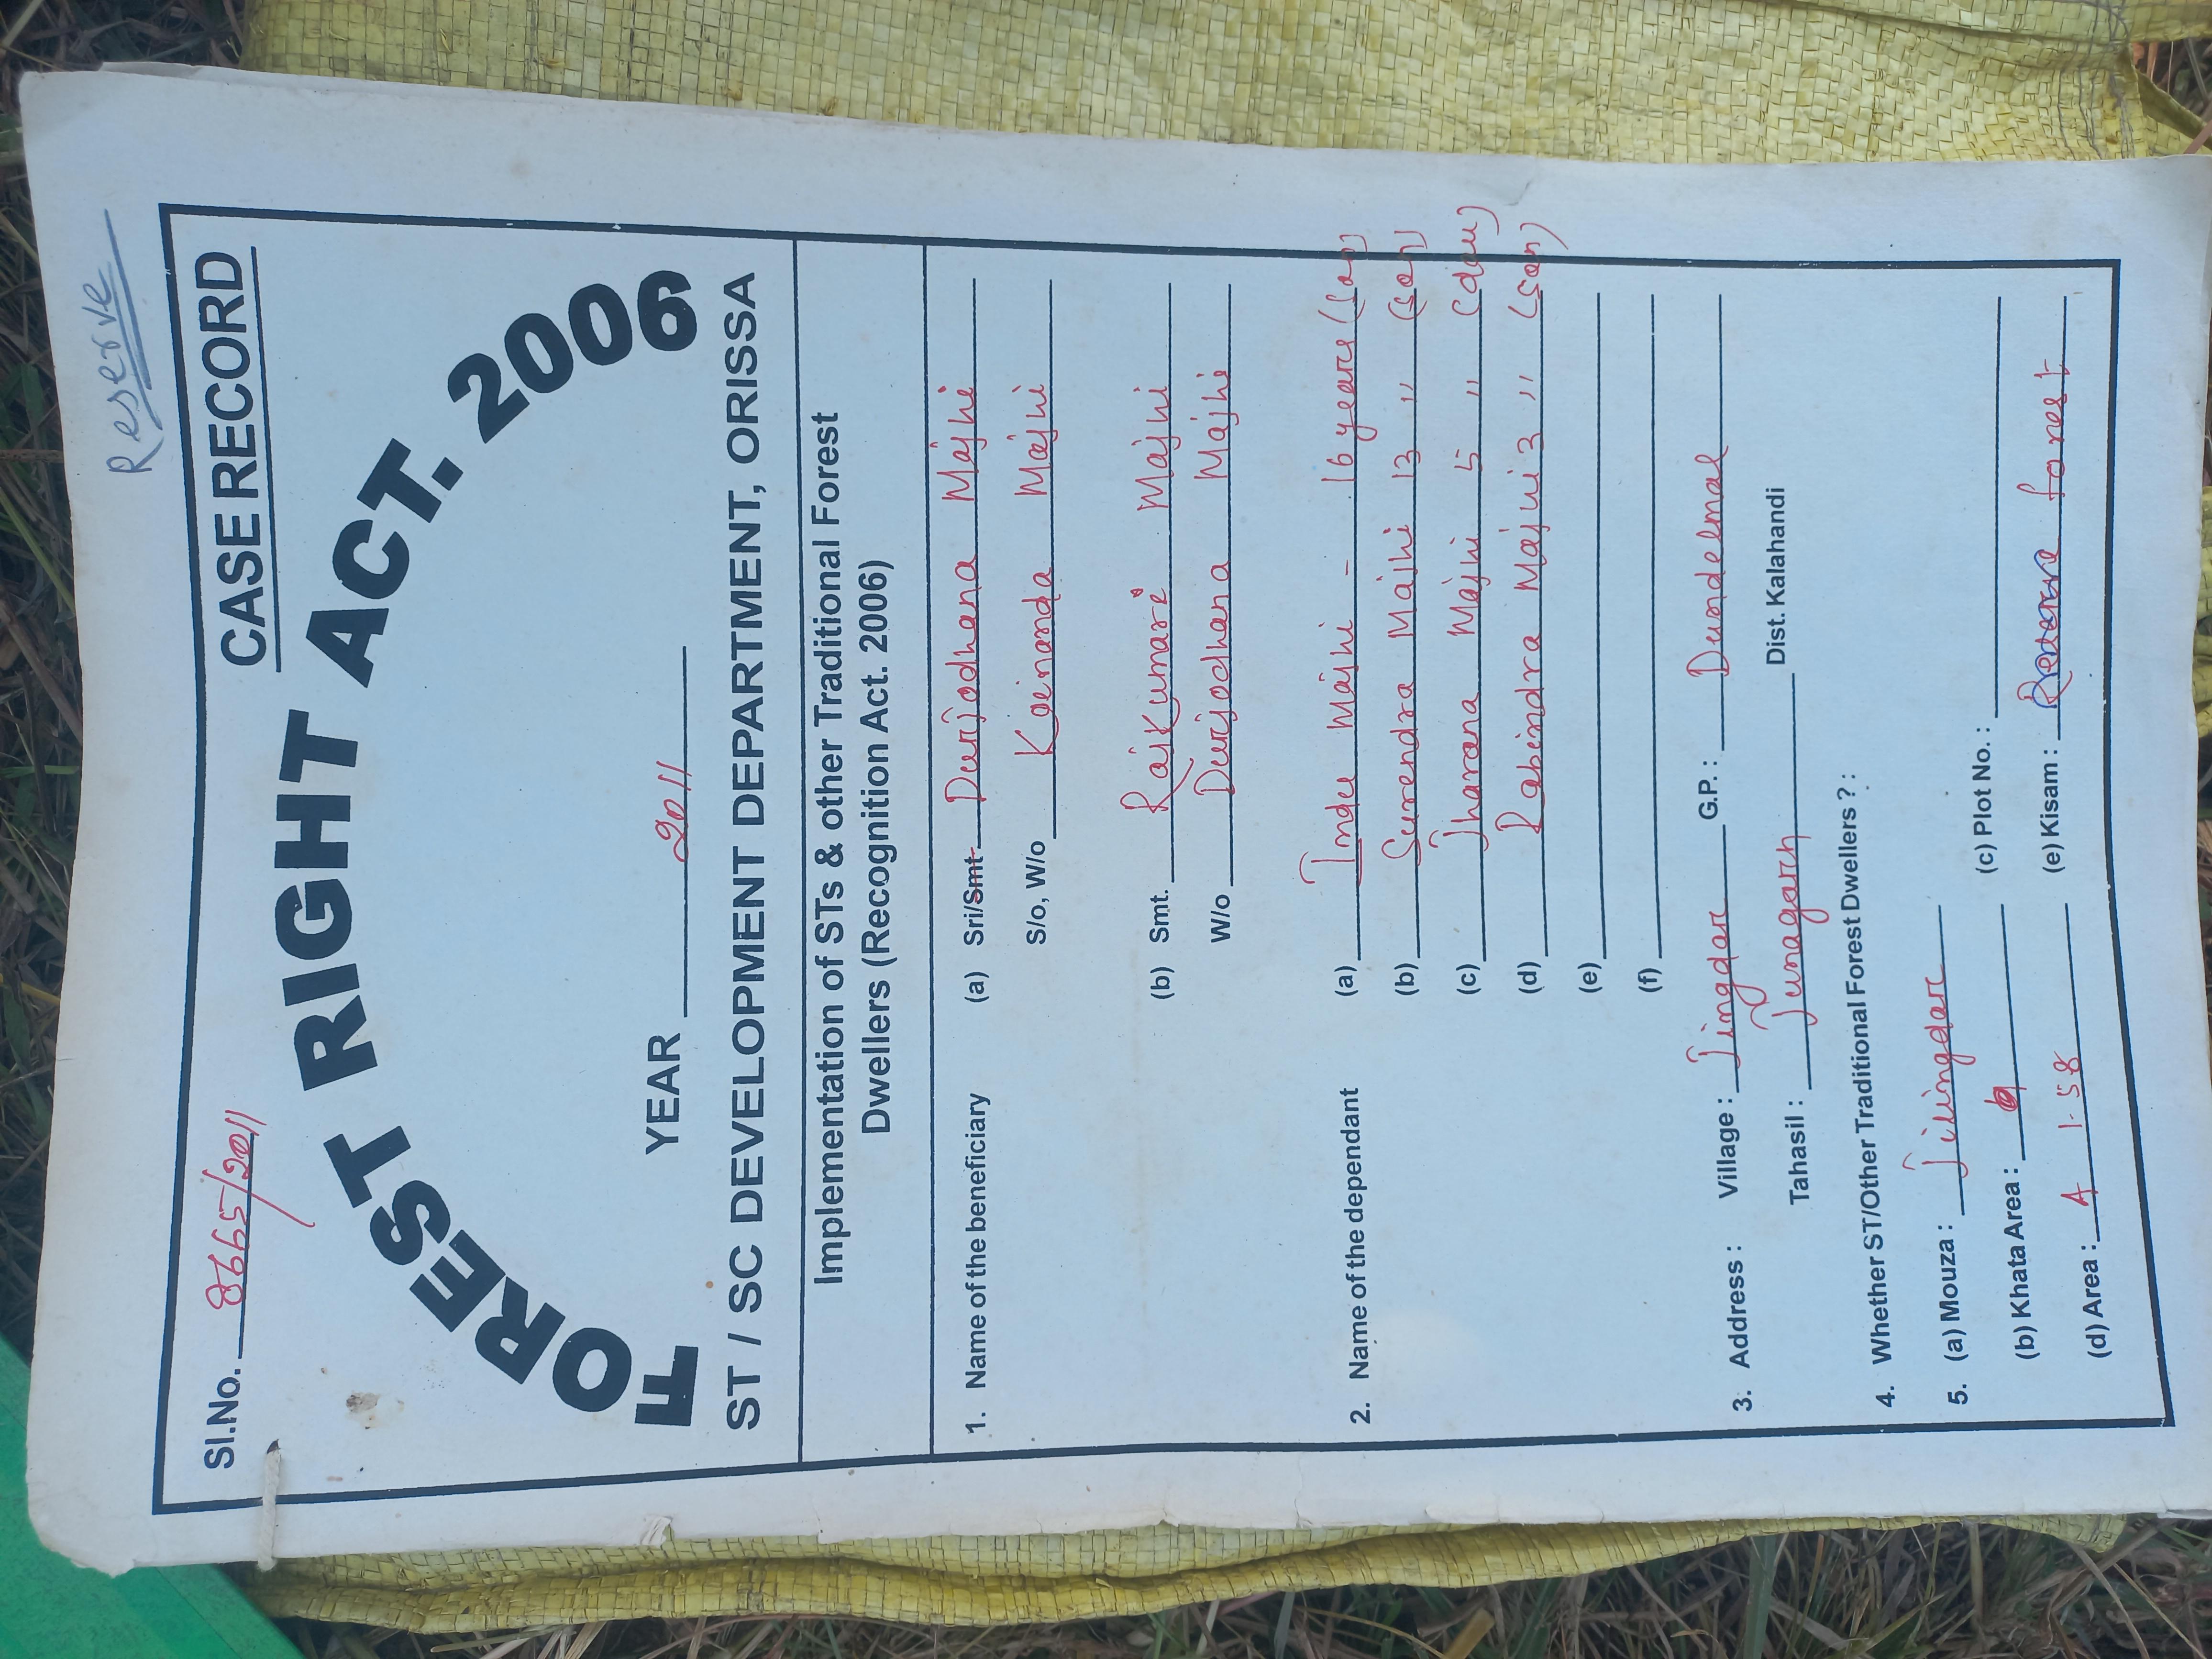 Reserve
Sl.No. 8665/2011 CASE RECORD
FOREST RIGHT ACT. 2006
YEAR 2011
ST / SC DEVELOPMENT DEPARTMENT, ORISSA
Implementation of STs & other Traditional Forest
Dwellers (Recognition Act. 2006)
1. Name of the beneficiary (a) Sri/Smt. Durjodhana Majhi
S/o, W/o Majhi
(b) Smt. Rajkumari Majhi
W/o Durjodhana Majhi
2. Name of the dependant (a) Indu Majhi - 16 years (son)
(b) Surendra Majhi 13 " (son)
(c) Jharana Majhi 5 " (dau)
(d) Rabindra Majhi 3 " (son)
(e)
(f)
3. Address : Village : Jingdar G.P. : Dundelmal
Tahasil : Junagarh Dist. Kalahandi
4. Whether ST/Other Traditional Forest Dwellers ? :
5. (a) Mouza : Jilingdar
(b) Khata Area : (c) Plot No. :
(d) Area : A 1.58 (e) Kisam : Reserve forest